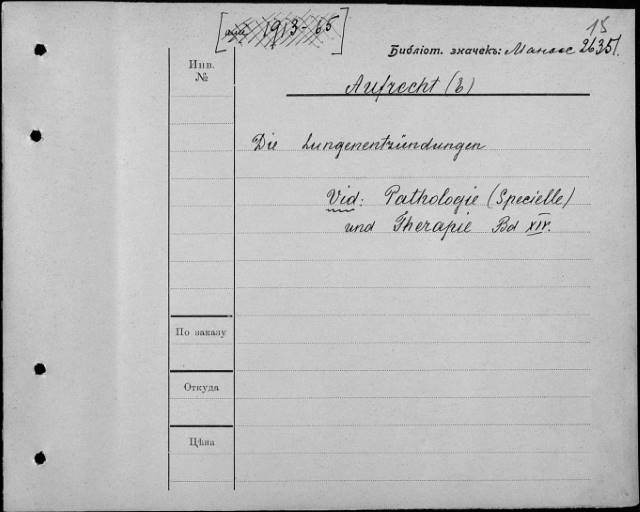 1913-65
15
Библіот. значекъ: 26351.
Инв.
№
Aufrecht (E)
Die Lungenentzündungen
Vid: Pathologie (Specielle)
und Therapie Bd XIV.
По заказу
Откуда
Цѣна